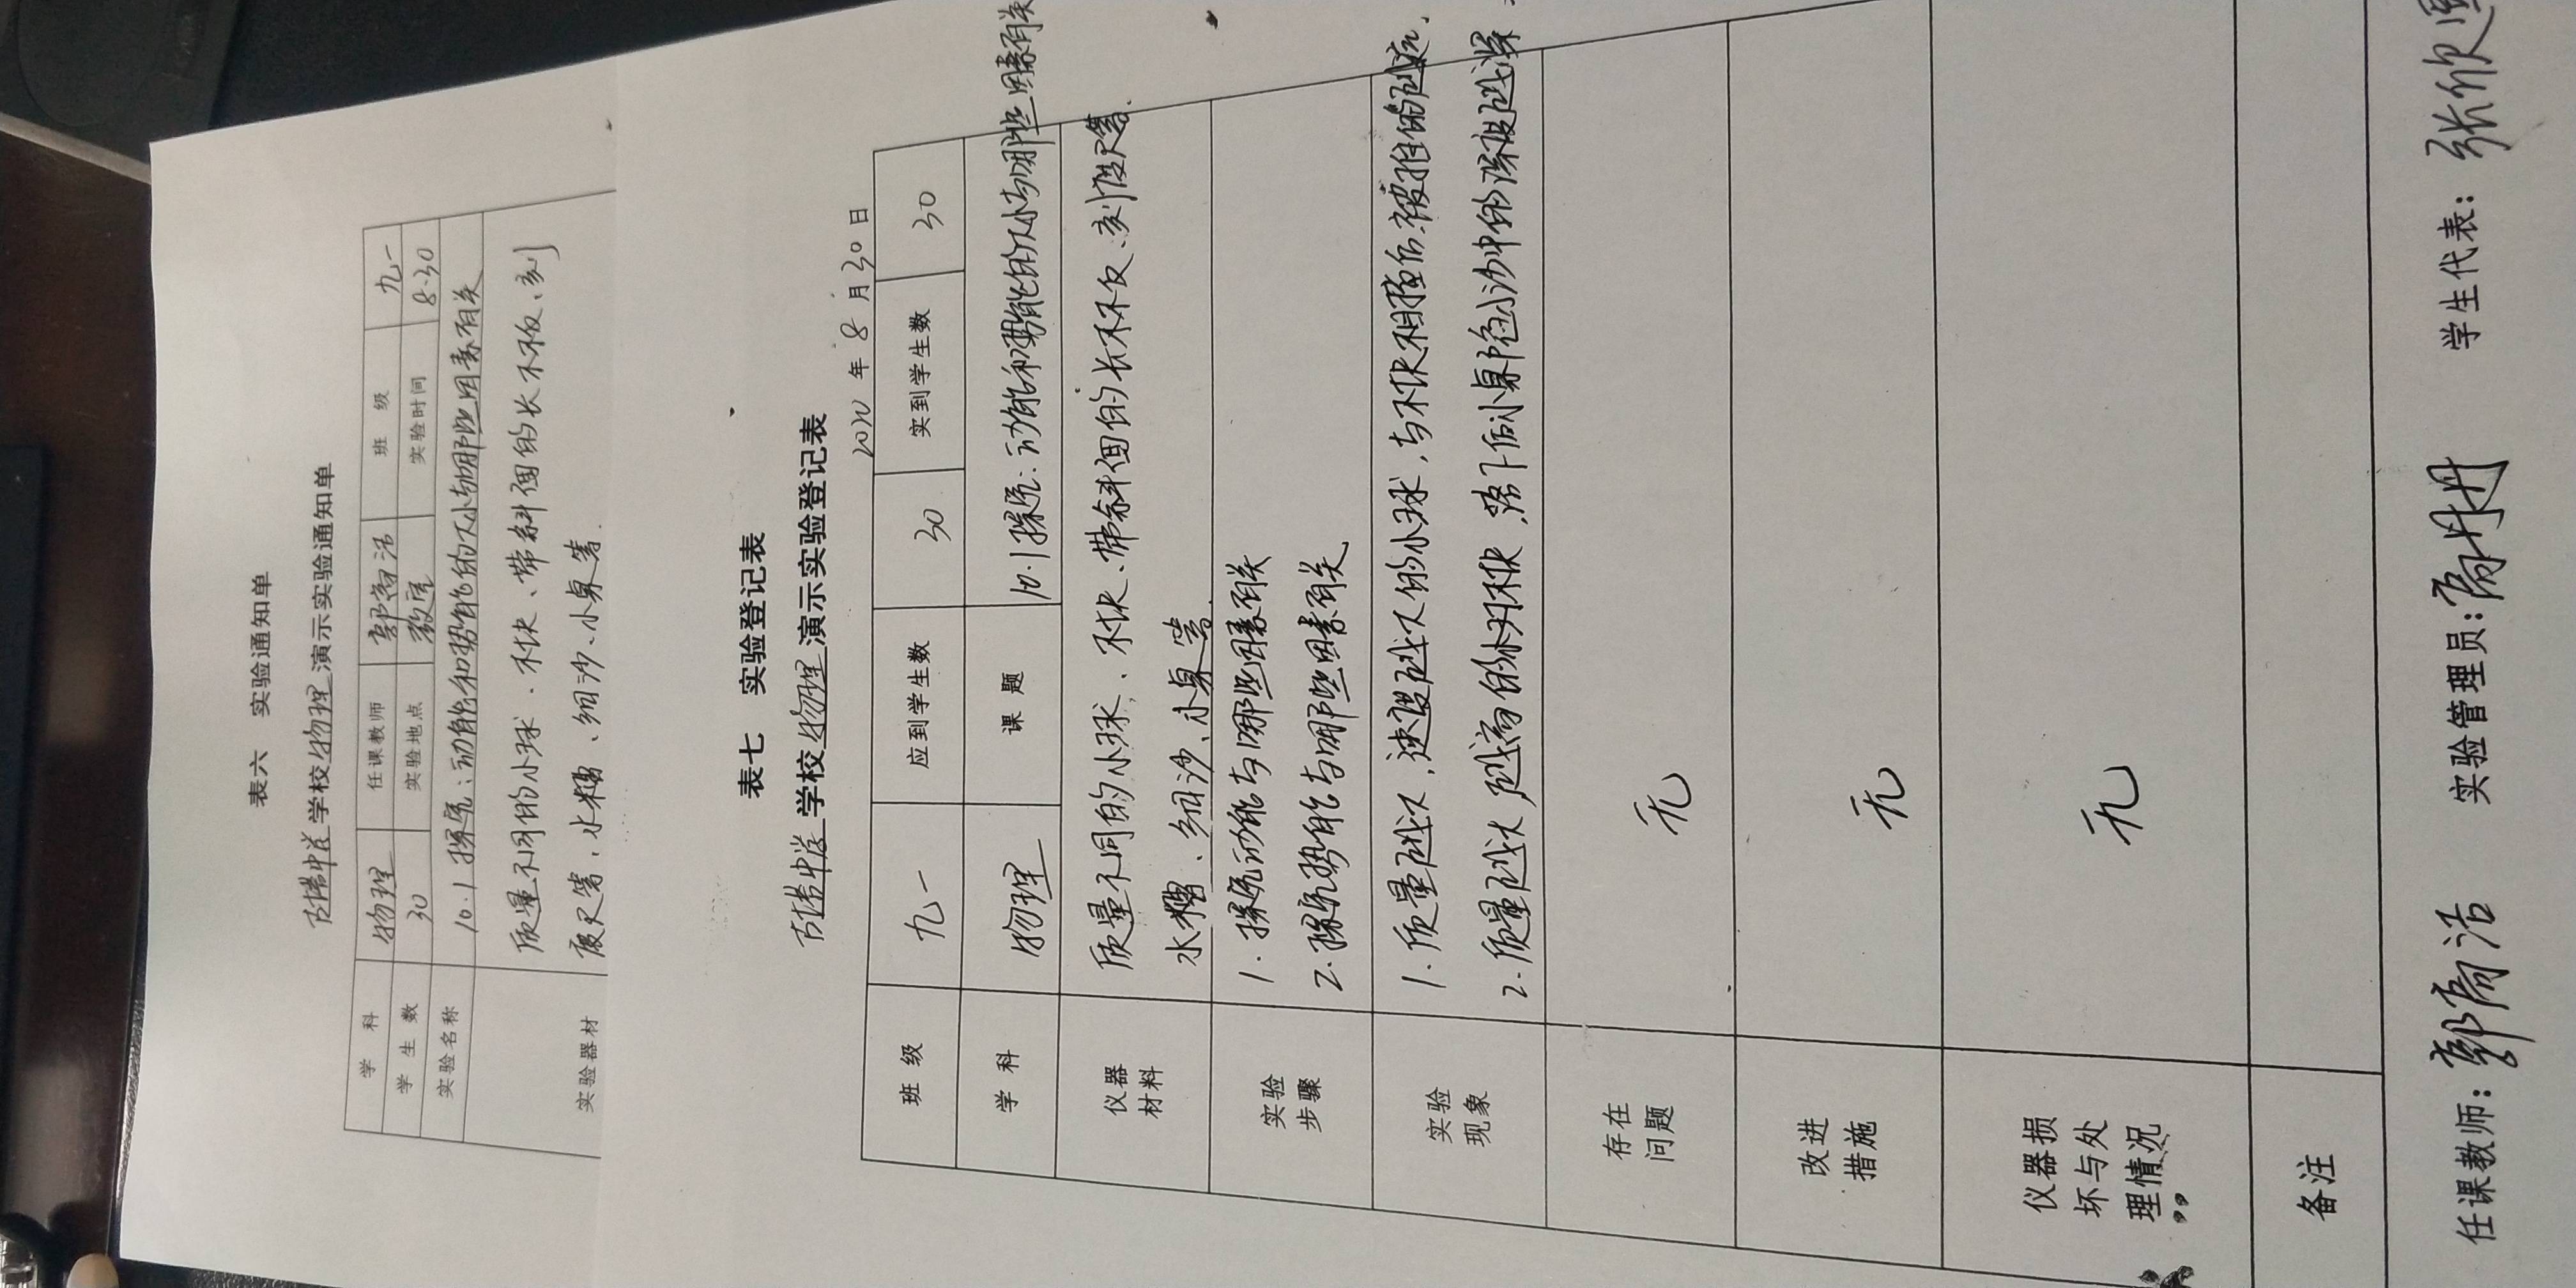 表六 实验通知单
学校物理演示实验通知单
学科 物理 任课教师 郭高洁 班级 九一
学生数 30 实验地点 教室 实验时间 8.30
实验名称 10.1探究:动能和势能的大小与哪些因素有关
实验器材 质量不同的小球、木块、带斜面的长木板、刻
度尺等,水槽、细沙、小桌等.
表七 实验登记表
学校物理演示实验登记表
2020年8月30日
班级 九一 应到学生数 30 实到学生数 30
学科 物理 课题 10.1探究:动能和势能的大小与哪些因素有关
仪器材料 质量不同的小球、木块、带斜面的长木板、刻度尺等.
水槽、细沙、小桌等.
实验步骤 1.探究动能与哪些因素有关
2.探究势能与哪些因素有关
实验现象 1.质量越大,速度越大的小球,与木块相撞后被推的越远.
2.质量越大,越高的木块,落下后小桌在沙中的深度越深.
存在问题 无
改进措施 无
仪器损坏与处理情况 无
备注
任课教师:郭高洁 实验管理员:高丹 学生代表:张欣